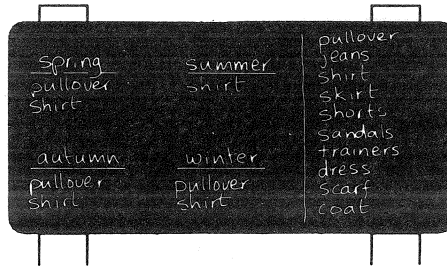 spring
pullover
shirt
summer
shirt
autumn
pullover
shirt
winter
pullover
shirt
pullover
jeans
shirt
skirt
shorts
sandals
trainers
dress
scarf
coat